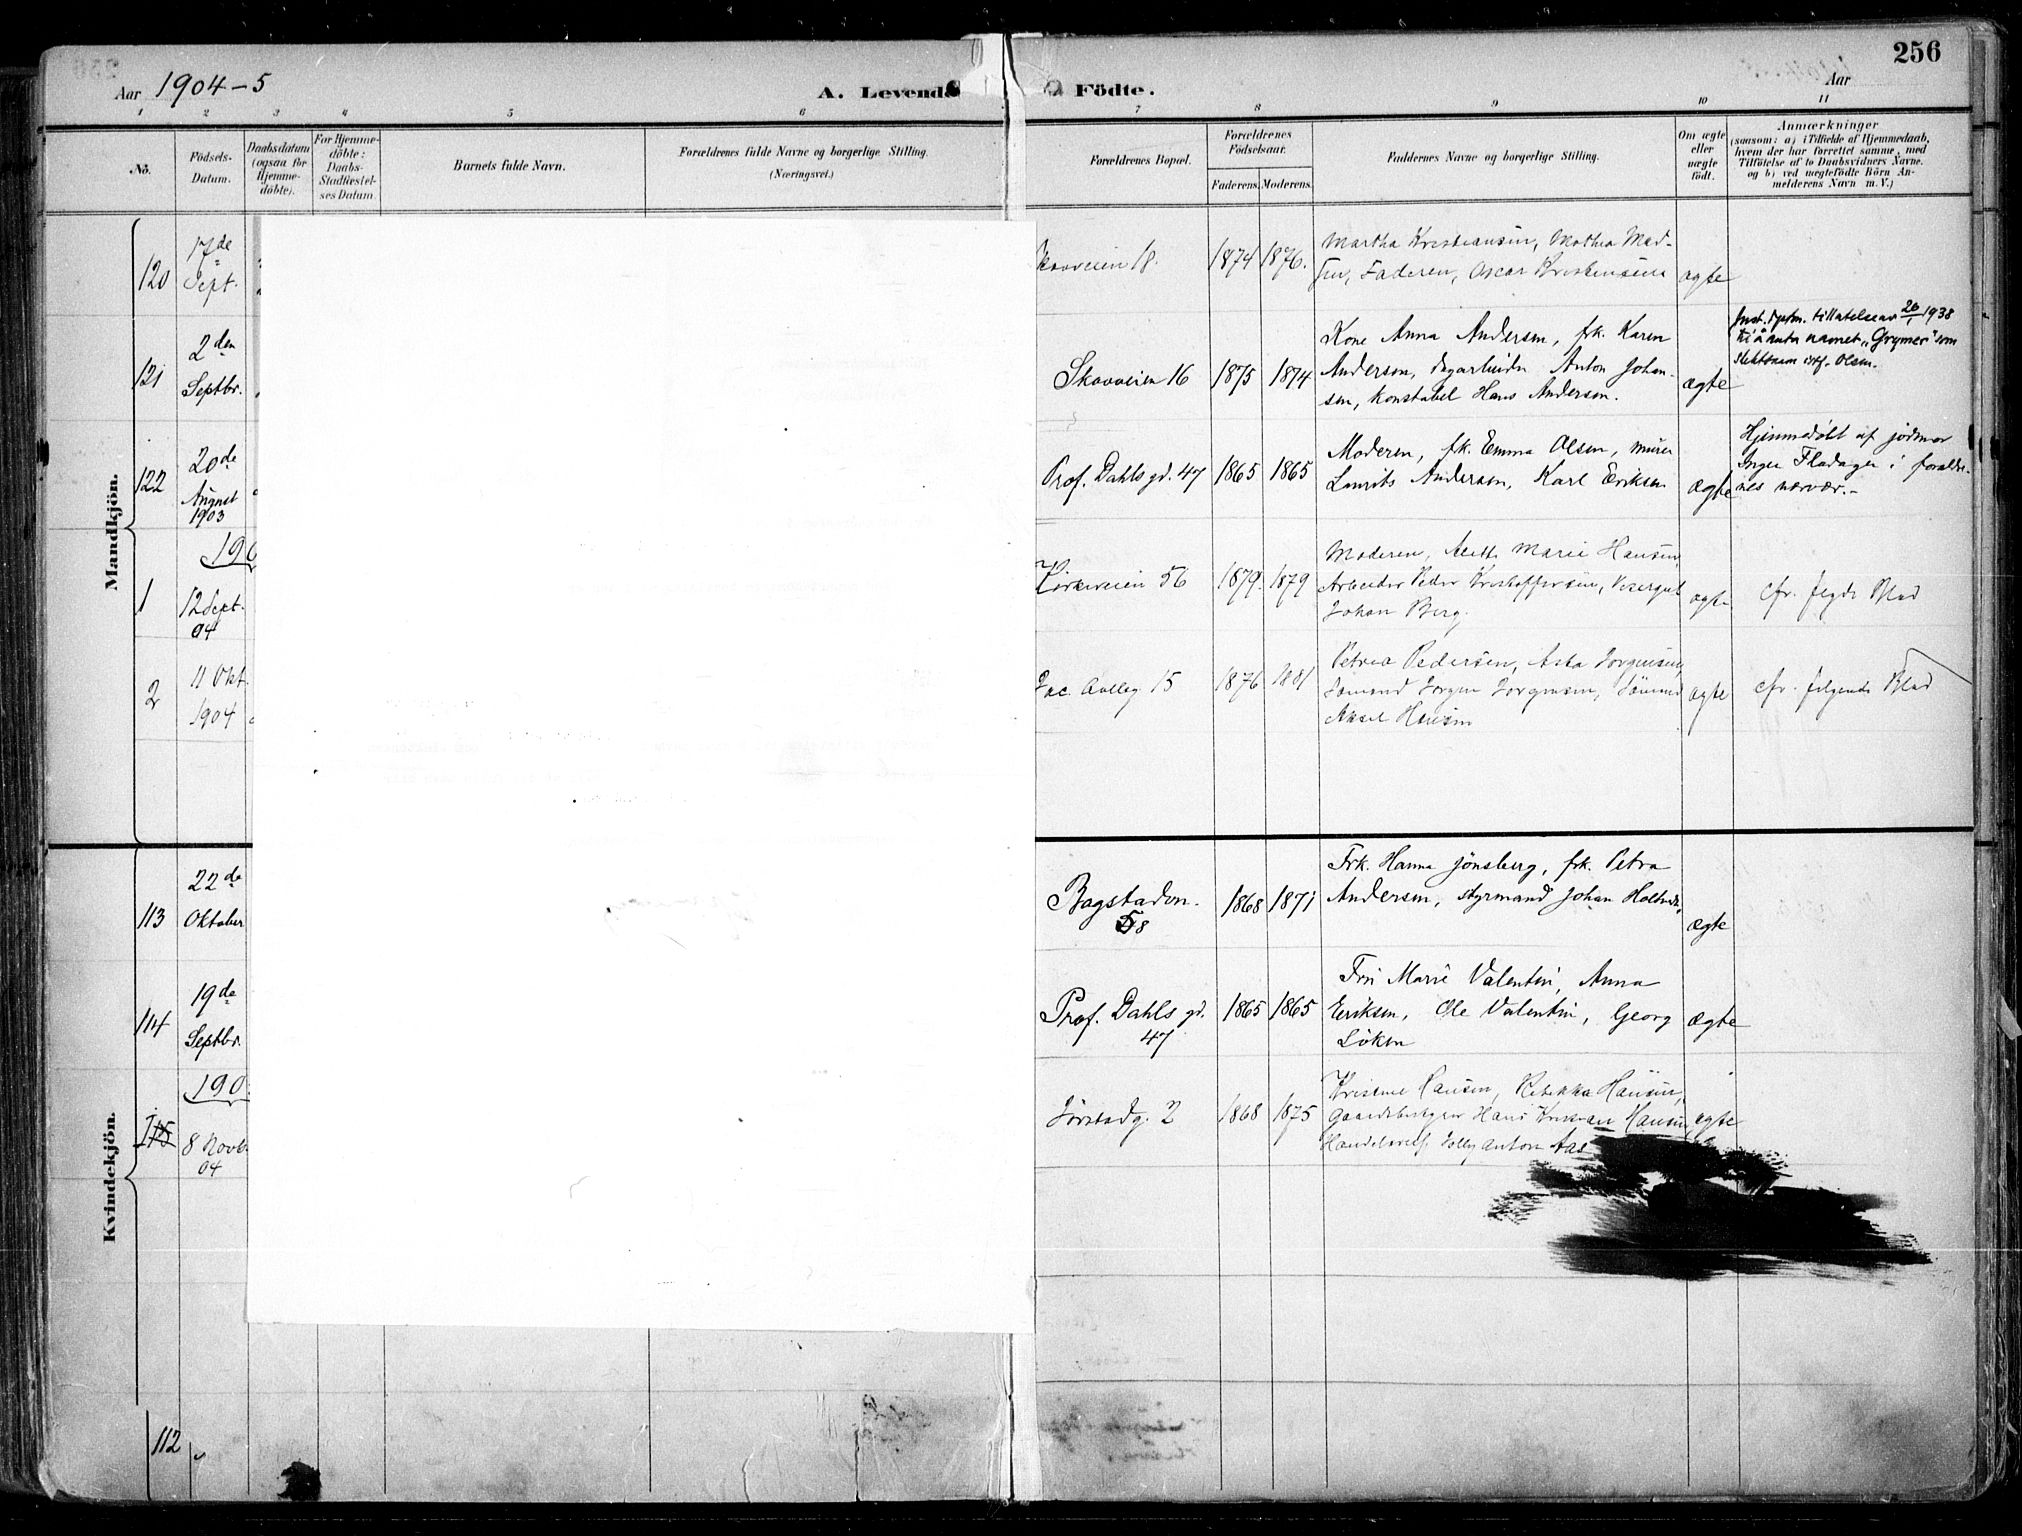 256
Aar 1904-5
A. Levende Födte.
Aar
1 2 3 4 5 6 7 8 9 10 11
No.
Födsels-Datum.
Daabsdatum (ogsaa for Hjemme-döbte).
For Hjemme-döbte: Daabs-Stadfæstel-ses Datum.
Barnets fulde Navn.
Forældrenes fulde Navne og borgerlige Stilling.
(Næringsvei.)
Forældrenes Bopæl.
Forældrenes Födselsaar.
Faderens. Moderens.
Faddernes Navne og borgerlige Stilling.
Om ægte eller uægte födt.
Anmærkninger
(saasom: a) i Tilfælde af Hjemmedaab,
hvem der har forrettet samme, med
Tilföielse af to Daabsvidners Navne.
og b) ved uægtefödte Börn An-
melderens Navn m. V.)
Mandkjön.
120 17de Sept.
Skovveien 18. 1874 1876.
Martha Kristiansen, Mathea Mad-
sen, Faderen, Oscar Kristensen
ægte
121 2den Septbr.
Skovveien 16 1875 1874
Kone Anna Andersen, frk. Karen
Andersen, dagarbeider Anton Johan-
sen, konstabel Hans Andersen.
ægte
Just.dptm. tillatelse av 20/1 1938
til å anta navnet "Grymer" som
slektsnavn istf. Olsen.
122 20de August 1903
Prof. Dahls gd. 47 1865 1865
Moderen, frk. Emma Olsen, murer
Laurits Andersen, Karl Eriksen
ægte
Hjemmedøbt af jordmor
Inger Fladager i forældre-
nes nærvær.-
190
1 12 Sept. 04
Kirkeveien 56 1879. 1879
Moderen, Alette Marie Hansen,
Arbeider Peder Kristoffersen, Visergut
Johan Berg.
ægte
cfr. flgde Blad
2 11 Okt. 1904
Jac. Aallsg 15 1876 1881
Petrea Pedersen, Asta Jorgensen,
Sömand Jorgen Jorgensen, Sömand
Aksel Hansen
ægte
cfr. følgende Blad
Kvindekjön.
113 22de Oktober
Bogstadvn. 58 1868 1871
Frk. Hanna Jönsberg, frk. Petra
Andersen, styrmand Johan
ægte
114 19de Septbr.
Prof. Dahls gd. 47 1865 1865
Fru Marie Valentin, Anna
Eriksen, Ole Valentin, Georg
Löken
ægte
190
1 115 8 Novb. 04
Jørstadg. 2 1868 1875
Kristine Hansen, Rebekka Hansen,
Gaardsbestyrer Hans Kristian Hansen
Handelsreis. Jolly Anton Aas
ægte
112